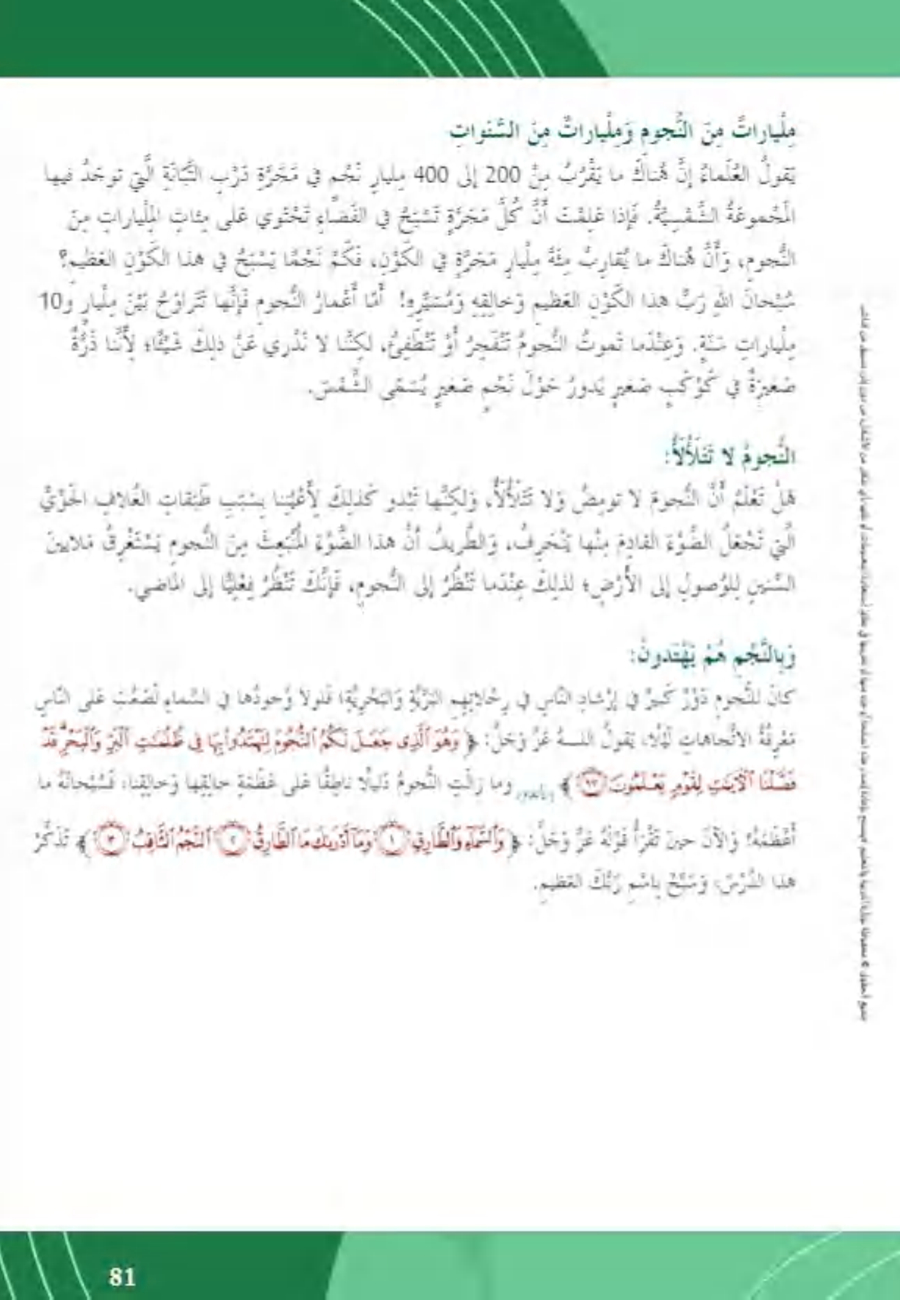 مِلْياراتٌ مِنَ النُّجومِ وَمِلْياراتٌ مِنَ السَّنَواتِ
يَقولُ العُلَماءُ إِنَّ هُناكَ ما يَقْرُبُ مِنْ 200 إِلى 400 مِليارِ نَجْمٍ في مَجَرَّةِ دَرْبِ التَّبّانَةِ الَّتي توجَدُ فيها
المَجْموعَةُ الشَّمْسِيَّةُ. فَإِذا عَلِمْتَ أَنَّ كُلَّ مَجَرَّةٍ تَسْبَحُ في الفَضاءِ تَحْتَوي عَلى مِئاتِ المِلْياراتِ مِنَ
النُّجومِ، وَأَنَّ هُناكَ ما يُقارِبُ مِئَةَ مِلْيارِ مَجَرَّةٍ في الكَوْنِ، فَكَمْ نَجْمًا يَسْبَحُ في هذا الكَوْنِ العَظيمِ؟
سُبْحانَ اللهِ رَبِّ هذا الكَوْنِ العَظيمِ وَخالِقِهِ وَمُسَيِّرِهِ! أَمّا أَعْمارُ النُّجومِ فَإِنَّها تَتَراوَحُ بَيْنَ مِلْيارٍ و10
مِلْياراتِ سَنَةٍ. وَعِنْدَما تَموتُ النُّجومُ تَنْفَجِرُ أَوْ تَنْطَفِئُ، لكِنَّنا لا نَدْري عَنْ ذلِكَ شَيْئًا؛ لِأَنَّنا ذَرَّةٌ
صَغيرَةٌ في كَوْكَبٍ صَغيرٍ يَدورُ حَوْلَ نَجْمٍ صَغيرٍ يُسَمّى الشَّمْسَ.
النُّجومُ لا تَتَلَأْلَأُ:
هَلْ تَعْلَمُ أَنَّ النُّجومَ لا تومِضُ وَلا تَتَلَأْلَأُ، وَلكِنَّها تَبْدو كَذلِكَ لِأَعْيُنِنا بِسَبَبِ طَبَقاتِ الغُلافِ الجَوِّيِّ
الَّتي تَجْعَلُ الضَّوْءَ القادِمَ مِنْها يَنْحَرِفُ، وَالطَّريفُ أَنَّ هذا الضَّوْءَ المُنْبَعِثَ مِنَ النُّجومِ يَسْتَغْرِقُ مَلايينَ
السِّنينِ لِلوُصولِ إِلى الأَرْضِ؛ لِذلِكَ عِنْدَما تَنْظُرُ إِلى النُّجومِ، فَإِنَّكَ تَنْظُرُ فِعْلِيًّا إِلى الماضي.
وَبِالنَّجْمِ هُمْ يَهْتَدونَ:
كانَ لِلنُّجومِ دَوْرٌ كَبيرٌ في إِرْشادِ النّاسِ في رِحْلاتِهِمِ البَرِّيَّةِ وَالبَحْرِيَّةِ؛ فَلَولا وُجودُها في السَّماءِ لَصَعُبَ عَلى النّاسِ
مَعْرِفَةُ الاتِّجاهاتِ لَيْلًا، يَقولُ اللهُ عَزَّ وَجَلَّ: ﴿ وَهُوَ ٱلَّذِى جَعَلَ لَكُمُ ٱلنُّجُومَ لِتَهْتَدُوا۟ بِهَا فِى ظُلُمَٰتِ ٱلْبَرِّ وَٱلْبَحْرِ قَدْ
فَصَّلْنَا ٱلْـَٔايَٰتِ لِقَوْمٍ يَعْلَمُونَ ٩٧ ﴾ وما زالَتِ النُّجومُ دَليلًا ناطِقًا عَلى عَظَمَةِ خالِقِها وَخالِقِنا، فَسُبْحانَهُ ما
أَعْظَمَهُ! وَالآنَ حينَ تَقْرَأُ قَوْلَهُ عَزَّ وَجَلَّ: ﴿ وَٱلسَّمَآءِ وَٱلطَّارِقِ ١ وَمَآ أَدْرَىٰكَ مَا ٱلطَّارِقُ ٢ ٱلنَّجْمُ ٱلثَّاقِبُ ٣ ﴾ تَذَكَّرْ
هذا الدَّرْسَ، وَسَبِّحْ بِاسْمِ رَبِّكَ العَظيمِ.
81